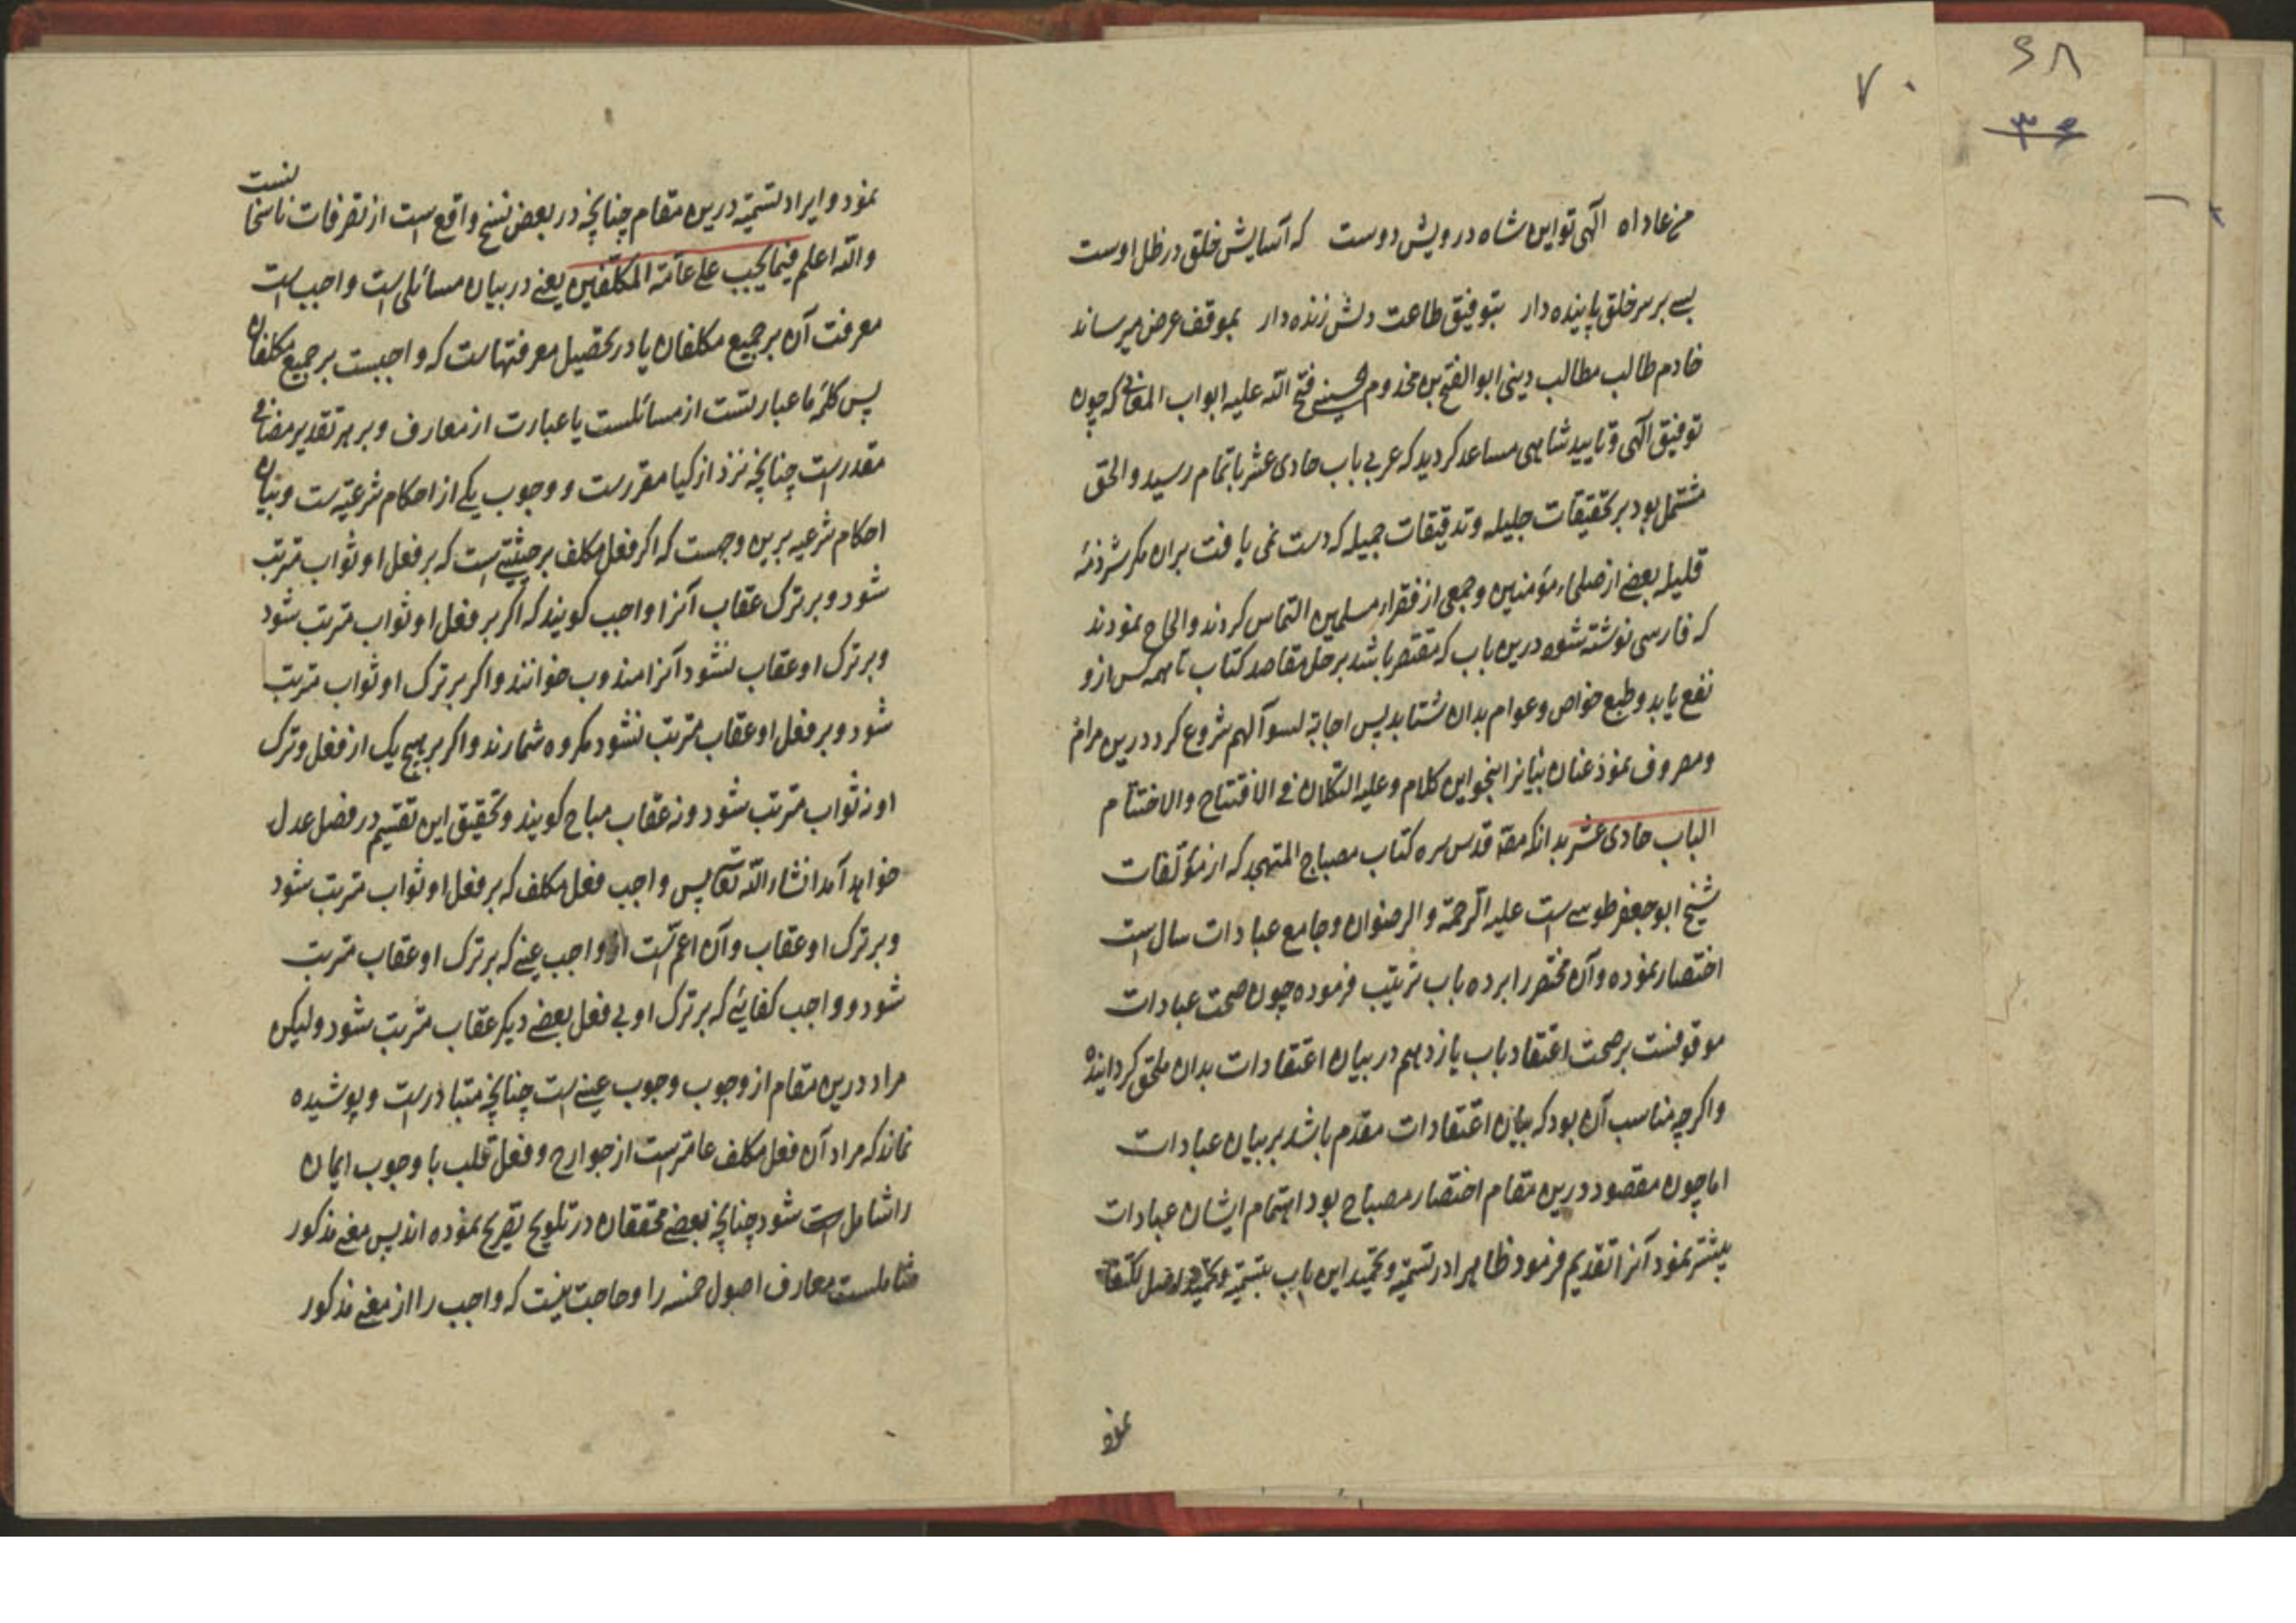 ۷۰
۶۸
۳۶
من عاداه الهی تو این شاه درویش دوست که آسایش خلق در ظل اوست
بسے بر سر خلق پاینده دار بتوفیق طاعت دلش زنده دار بموقف عرض میرساند
خادم طالب مطالب دینی ابو الفتح بن مخدوم الحسینے فتح الله علیه ابواب المعانی که چون
توفیق الهی و تایید شاهی مساعد کردید که عربی باب حادی عشر باتمام رسید و الحق
مشتمل بود بر تحقیقات جلیله و تدقیقات جمیله که دست نمی یافت بران مکر شرذمهٔ
قلیله بعضے از صلحاء مؤمنین و جمعی از فقراء مسلمین التماس کردند و الحاح نمودند
که فارسی نوشته شود درین باب که مقتصر باشد بر حل مقاصد کتاب تا همه کس ازو
نفع یابد و طبع خواص و عوام بدان شتابد پس اجابة لسوآلهم شروع کرد درین مرام
و مصروف نمود عنان بیانرا بنحو این کلام و علیه التکلان فی الافتتاح و الاختتام
الباب حادی عشر بدانکه مصه قدس سره کتاب مصباح المتهجد که از مؤلفات
شیخ ابو جعفر طوسے است علیه الرحمة و الرضوان و جامع عبادات سال است
اختصار نموده و آن مختصر را بر ده باب ترتیب فرموده چون صحت عبادات
موقوفست بر صحت اعتقاد باب یازدهم در بیان اعتقادات بدان ملحق کردانیده
و اکر چه مناسب آن بود که بیان اعتقادات مقدم باشد بر بیان عبادات
اما چون مقصود درین مقام اختصار مصباح بود اهتمام ایشان عبادات
بیشتر نمود آنرا تقدیم فرمود ظاهرا در تسمیة و تحمید این باب بتسمیة و تحمید اصل اکتفا
نمود
نمود و ایراد تسمیة درین مقام چنانچه در بعض نسخ واقع است از تصرفات ناسخا
نست
و الله اعلم فیما یجب علی عامة المکلفین یعنے در بیان مسائلی است واجب است
معرفت آن بر جمیع مکلفان یا در تحصیل معرفتهاست که واجبست بر جمیع مکلفان
پس کلمهٔ ما عبارتست از مسائلست یا عبارت از معارف و بر هر تقدیر مضافی
مقدرست چنانچه نزد ازکیا مقررست و وجوب یکے از احکام شرعیه ست و بیان
احکام شرعیه برین وجهست که اکر فعل مکلف بر حیثیتے است که بر فعل او ثواب مترتب
شود و بر ترک عقاب آنرا واجب کویند که اکر بر فعل او ثواب مترتب شود
و بر ترک او عقاب نشود آنرا مندوب خوانند و اکر بر ترک او ثواب مترتب
شود و بر فعل او عقاب مترتب نشود مکروه شمارند و اکر بر هیچ یک از فعل و ترک
او نه ثواب مترتب شود و نه عقاب مباح کویند و تحقیق این تقسیم در فصل عدل
خواهد آمد انشاء الله تعالی پس واجب فعل مکلف که بر فعل او ثواب مترتب شود
و بر ترک او عقاب و آن اعم است از واجب عینے که بر ترک او عقاب مترتب
شود و واجب کفایئے که بر ترک او بی فعل بعضے دیکر عقاب مترتب شود و لیکن
مراد درین مقام از وجوب وجوب عینے است چنانچه متبادرست و پوشیده
نماند که مراد آن فعل مکلف عامترست از جوارح و فعل قلب با وجوب ایمان
را شامل است شود چنانچه بعضے محققان در تلویح تصریح نموده اند پس معنی مذکور
شاملست معارف اصول خمسه را و حاجت نیست که واجب را از معنی مذکور